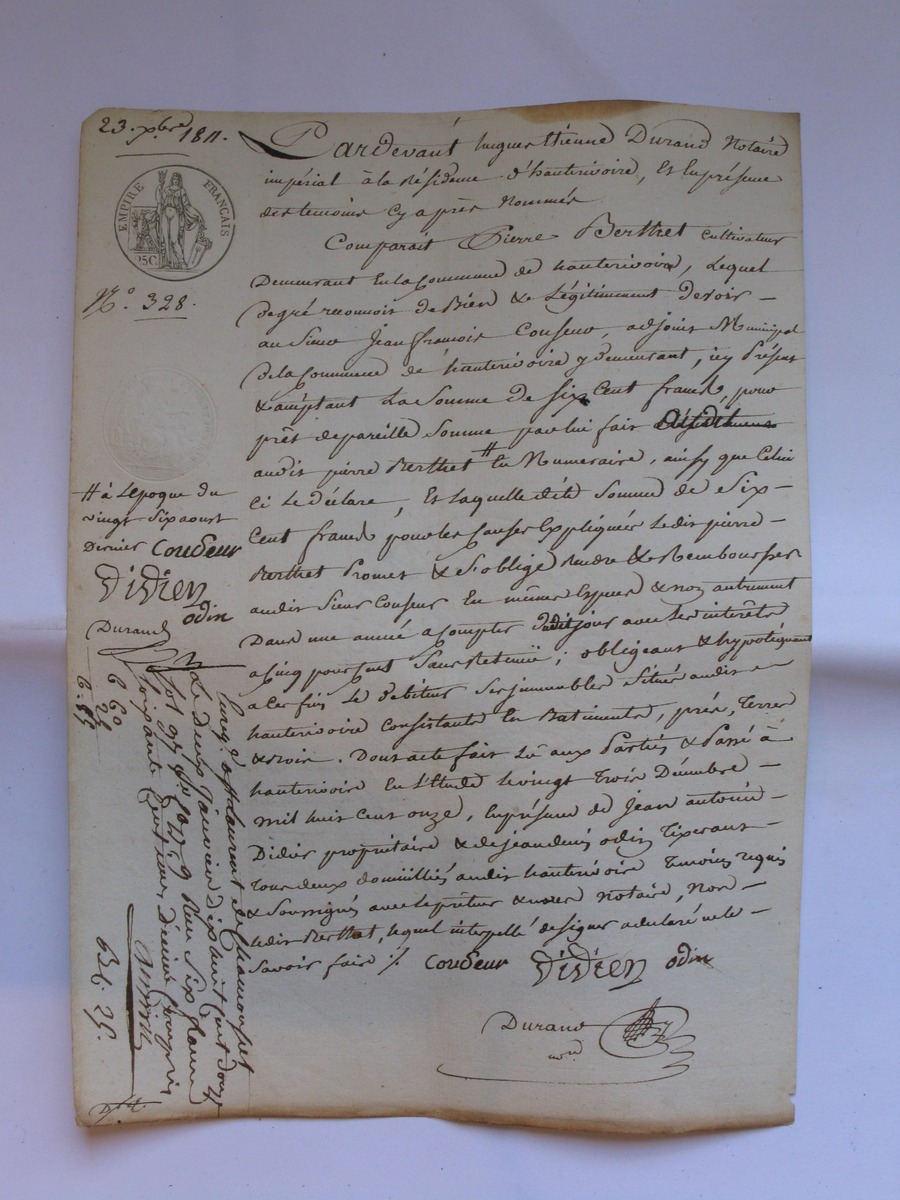 23. xbre 1811.
EMPIRE FRANÇAIS
25C
N.o 328.
Pardevant huguesEtienne Durand Notaire
impérial à la Résidence d'hauterivoire, Et Enprésence
destemoins Cy après Nommés
Comparait Pierre Berthet Cultivateur
Demeurant En la Commune de hauterivoire, Lequel
degré reconnoit de Bien & Légitimement devoir –
au Sieur Jean françois Couseur, adjoint Municipal
de la Commune de hauterivoire y demeurant, icy Présent
& acceptant La Somme de Six Cent francs, pour
prêt de pareille Somme par lui fait
audit pierre Berthet # En Numeraire, ainsy que Celui
Ci Le déclare, Et Laquelle dite Somme de Six –
Cent francs pour les Causes Expliquées Ledit pierre –
Berthet Promet & S'oblige Rendre & Rembourser
audit Sieur Couseur En mêmes Espèces & non autrement
Dans une année a Compter dudit jour avec Les intérêts
a Cinq pour Cent Sans Retenue ; obligeant & hypotéquant
a Ces fins Le débiteur Ses immeubles Situés audit –
hauterivoire Consistants En Batiments, prés, Terres
& Bois. Dont acte fait Lu aux Parties & Passé à
hauterivoire En L'Etude Le vingt Trois Décembre –
mil huit Cent onze, En présence de Jean antoine
Didier propriétaire & de jean denis odin Tixerant –
Tous deux domiciliés audit hauterivoire Temoins requis
& Soussignés avec Le prêteur & nous Notaire, Non –
Ledit Berthet, Lequel interpellé de signer a declaré ne le –
Savoir faire ./. Couseur Didier odin
Durand
nore
# à Lepoque du
vingt Six aoust
Dernier Couseur
Didier
odin
Durand
6 "
60
6.
Enreg.é à St Laurent de Chamousset
Le Deux Janvier Dix huit Cent Douze
Reçu Six francs
Soixante Centimes Dixième Compris